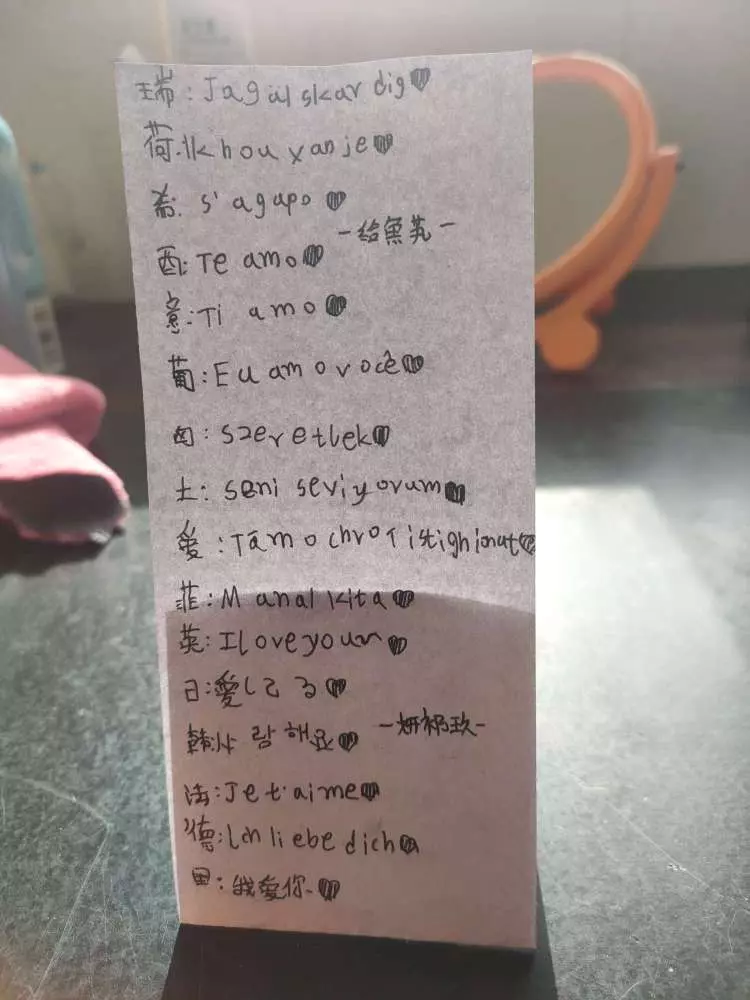 瑞: Jag älskar dig
荷: Ik hou van je
希: s'agapo
－給魚芃－
西: Te amo
意: Ti amo
葡: Eu amo você
匈: szeretlek
土: seni seviyorum
愛: Tá mo chroí istigh ionat
菲: Manal kita
英: I love you
日: 愛してる
韓: 사랑해요
法: Je t'aime
德: Ich liebe dich
我愛你